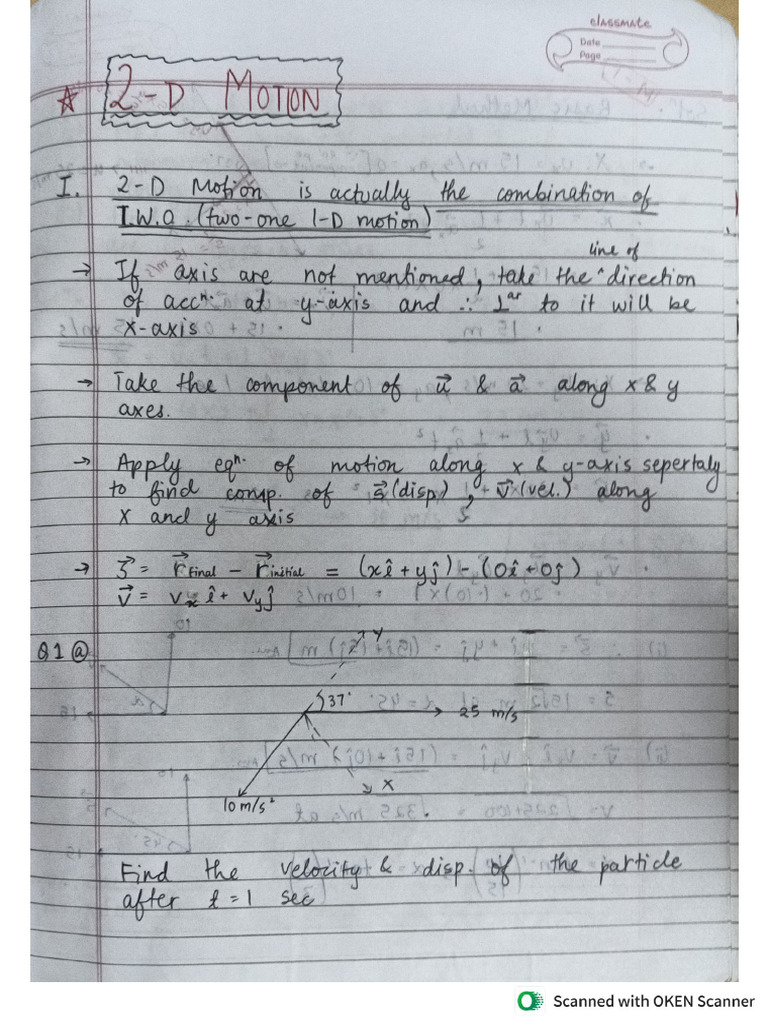 classmate
Date
Page
2-D MOTION
I. 2-D Motion is actually the combination of
T.W.O. (two-one 1-D motion)
line of
→ If axis are not mentioned, take the ^ direction
of accⁿ. at y-axis and ∴ ⊥ᵃʳ to it will be
x-axis
→ Take the component of u⃗ & a⃗ along x & y
axes.
→ Apply eqⁿ. of motion along x & y-axis sepertaly
to find comp. of s⃗ (disp.), v⃗ (vel.) along
X and y axis
→ s⃗ = r⃗ Final - r⃗ initial = (xî + yĵ) - (0î + 0ĵ)
v⃗ = vₓ î + vᵧ ĵ
Q1 ⓐ
Y
37°
25 m/s
X
10 m/s²
Find the velocity & disp. of the particle
after t = 1 sec
Scanned with OKEN Scanner